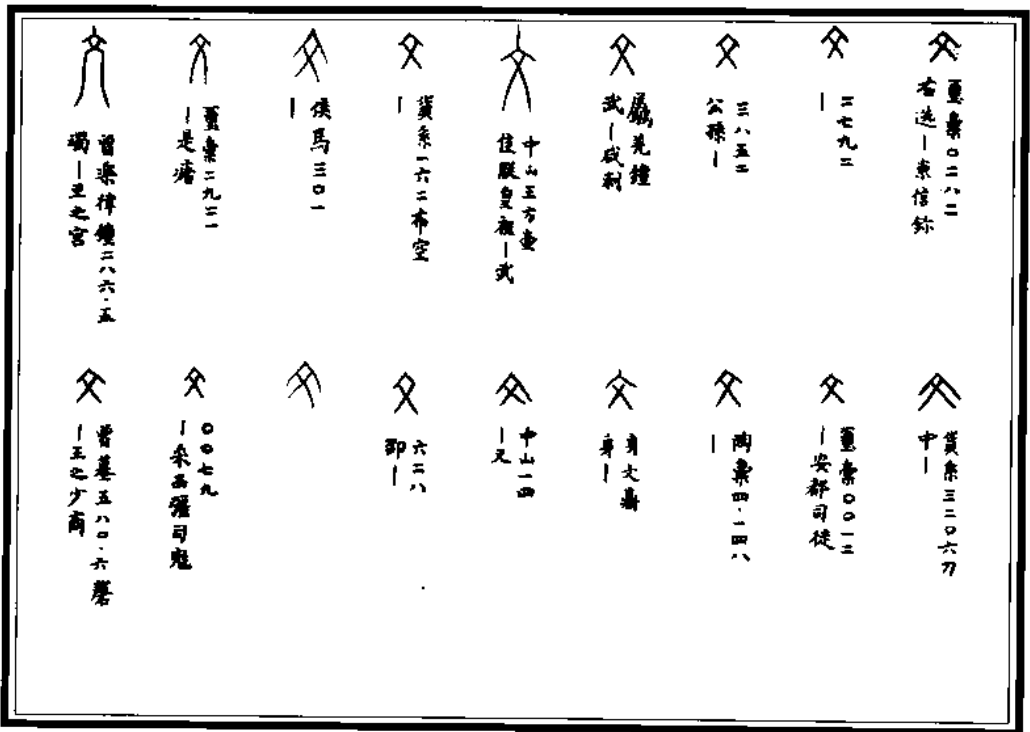 璽彙〇二八二
右选｜𣐺信鉨
二七九二
｜
三八五二
公孫｜
驫羌鐘
武｜咸剌
中山王方壺
隹朕皇祖｜武
貨系一六二布空
｜
侯馬三〇一
｜
璽彙二九二一
｜是
曾樂律鐘二八六·五
｜王之宮
貨系三二〇六刀
中｜
璽彙〇〇一二
｜安都司徒
陶彙四·一四八
｜
中山一四
｜又
六二八
｜
〇〇七九
｜司
曾墓五八〇·六磬
｜王之少商